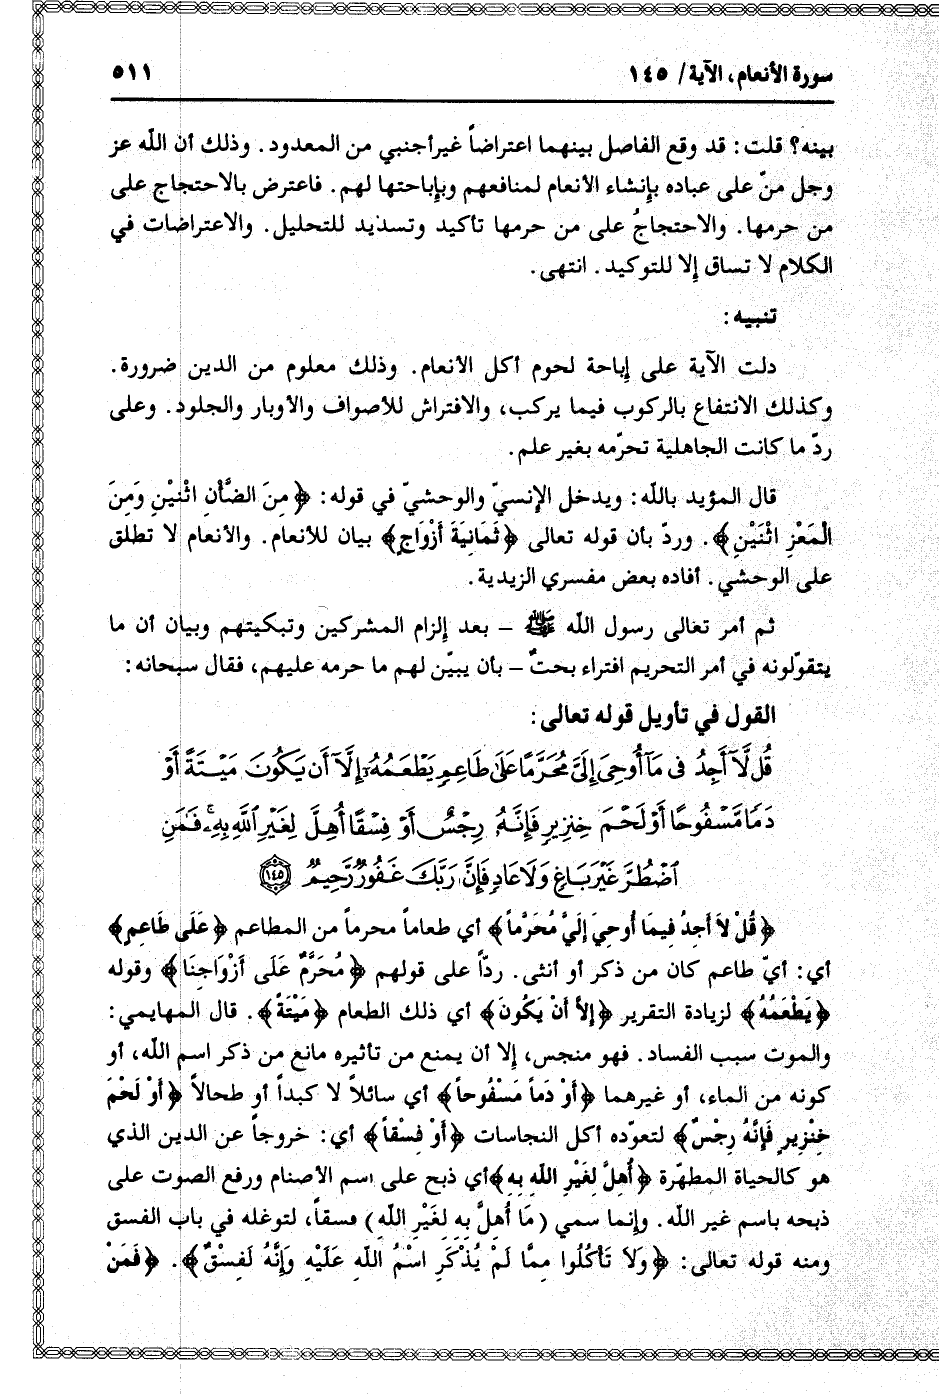 سورة الأنعام، الآية/ ١٤٥
٥١١
بينه؟ قلت: قد وقع الفاصل بينهما اعتراضاً غير أجنبي من المعدود. وذلك أن الله عز
وجل منّ على عباده بإنشاء الأنعام لمنافعهم وبإباحتها لهم. فاعترض بالاحتجاج على
من حرمها. والاحتجاجُ على من حرمها تأكيد وتسديد للتحليل. والاعتراضات في
الكلام لا تساق إلا للتوكيد. انتهى.
تنبيه:
دلت الآية على إباحة لحوم أكل الأنعام. وذلك معلوم من الدين ضرورة.
وكذلك الانتفاع بالركوب فيما يركب، والافتراش للأصواف والأوبار والجلود. وعلى
ردّ ما كانت الجاهلية تحرّمه بغير علم.
قال المؤيد بالله: ويدخل الإنسيّ والوحشيّ في قوله: ﴿مِنَ الضَّأْنِ اثْنَيْنِ وَمِنَ
الْمَعْزِ اثْنَيْنِ﴾. وردّ بأن قوله تعالى ﴿ثَمَانِيَةَ أَزْوَاجٍ﴾ بيان للأنعام. والأنعام لا تطلق
على الوحشي. أفاده بعض مفسري الزيدية.
ثم أمر تعالى رسول الله ﷺ – بعد إلزام المشركين وتبكيتهم وبيان أن ما
يتقوّلونه في أمر التحريم افتراء بحتٌ – بأن يبيّن لهم ما حرمه عليهم، فقال سبحانه:
القول في تأويل قوله تعالى:
قُل لَّآ أَجِدُ فِى مَآ أُوحِىَ إِلَىَّ مُحَرَّمًا عَلَىٰ طَاعِمٍ يَطْعَمُهُۥٓ إِلَّآ أَن يَكُونَ مَيْتَةً أَوْ
دَمًا مَّسْفُوحًا أَوْ لَحْمَ خِنزِيرٍ فَإِنَّهُۥ رِجْسٌ أَوْ فِسْقًا أُهِلَّ لِغَيْرِ ٱللَّهِ بِهِۦۚ فَمَنِ
ٱضْطُرَّ غَيْرَ بَاغٍ وَلَا عَادٍ فَإِنَّ رَبَّكَ غَفُورٌ رَّحِيمٌ ﴿١٤٥﴾
﴿قُلْ لاَ أَجِدُ فِيمَا أُوحِيَ إِلَيَّ مُحَرَّماً﴾ أي طعاماً محرماً من المطاعم ﴿عَلَى طَاعِمٍ﴾
أي: أيّ طاعم كان من ذكر أو أنثى. ردّاً على قولهم ﴿مُحَرَّمٌ عَلَى أَزْوَاجِنَا﴾ وقوله
﴿يَطْعَمُهُ﴾ لزيادة التقرير ﴿إِلاَّ أَنْ يَكُونَ﴾ أي ذلك الطعام ﴿مَيْتَةً﴾. قال المهايمي:
والموت سبب الفساد. فهو منجس، إلا أن يمنع من تأثيره مانع من ذكر اسم الله، أو
كونه من الماء، أو غيرهما ﴿أَوْ دَماً مَسْفُوحاً﴾ أي سائلاً لا كبداً أو طحالاً ﴿أَوْ لَحْمَ
خِنْزِيرٍ فَإِنَّهُ رِجْسٌ﴾ لتعوّده أكل النجاسات ﴿أَوْ فِسْقاً﴾ أي: خروجاً عن الدين الذي
هو كالحياة المطهّرة ﴿أُهِلَّ لِغَيْرِ اللهِ بِهِ﴾أي ذبح على اسم الأصنام ورفع الصوت على
ذبحه باسم غير الله. وإنما سمي (مَا أُهِلَّ بِهِ لِغَيْرِ اللهِ) فسقاً، لتوغله في باب الفسق
ومنه قوله تعالى: ﴿وَلاَ تَأْكُلُوا مِمَّا لَمْ يُذْكَرِ اسْمُ اللهِ عَلَيْهِ وَإِنَّهُ لَفِسْقٌ﴾. ﴿فَمَنْ